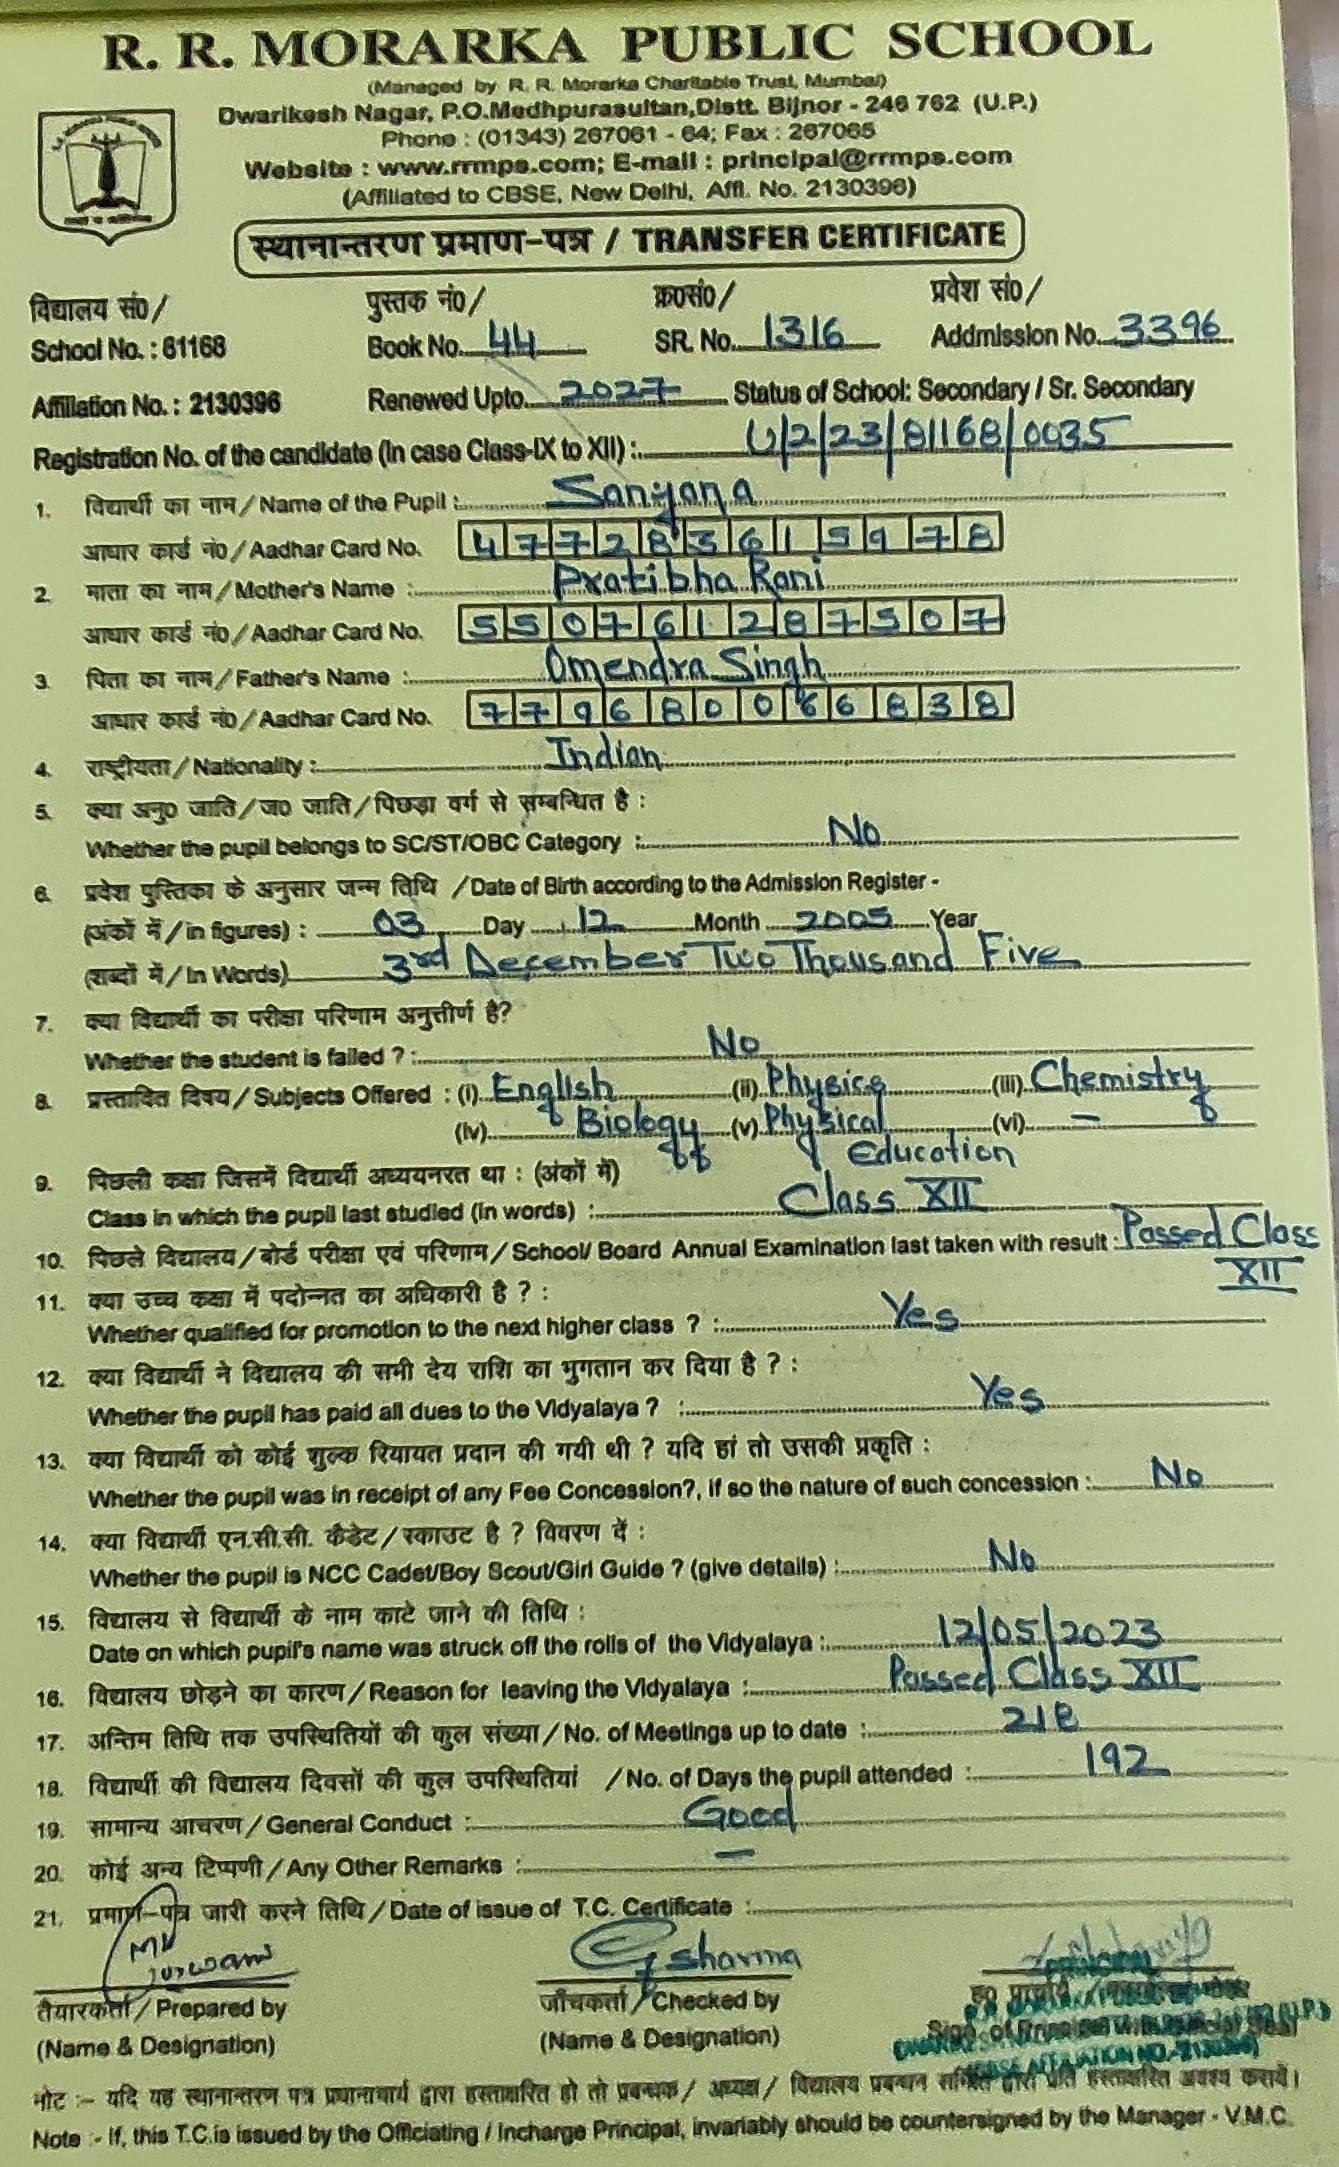 R. R. MORARKA PUBLIC SCHOOL
(Managed by R. R. Morarka Charitable Trust, Mumbai)
Dwarikesh Nagar, P.O.Medhpurasultan,Distt. Bijnor - 246 762 (U.P.)
Phone : (01343) 267061 - 64; Fax : 267065
Website : www.rrmps.com; E-mail : principal@rrmps.com
(Affiliated to CBSE, New Delhi, Affl. No. 2130396)
स्थानान्तरण प्रमाण-पत्र / TRANSFER CERTIFICATE
विद्यालय सं0/ पुस्तक नं0/ क्र0सं0/ प्रवेश सं0/
School No. : 81168 Book No. 44 SR. No. 1316 Addmission No. 3396
Affiliation No. : 2130396 Renewed Upto 2027 Status of School: Secondary / Sr. Secondary
Registration No. of the candidate (In case Class-IX to XII) : U/2/23/81168/0035
1. विद्यार्थी का नाम / Name of the Pupil : Sanjana
आधार कार्ड नं0 / Aadhar Card No. 4 7 7 2 8 3 6 1 5 9 7 8
2. माता का नाम / Mother's Name : Pratibha Rani
आधार कार्ड नं0 / Aadhar Card No. 5 5 0 7 6 1 2 8 7 5 0 7
3. पिता का नाम / Father's Name : Omendra Singh
आधार कार्ड नं0 / Aadhar Card No. 7 7 9 6 8 0 0 6 6 8 3 8
4. राष्ट्रीयता / Nationality : Indian
5. क्या अनु0 जाति / ज0 जाति / पिछड़ा वर्ग से सम्बन्धित है :
Whether the pupil belongs to SC/ST/OBC Category : No
6. प्रवेश पुस्तिका के अनुसार जन्म तिथि / Date of Birth according to the Admission Register -
(अंकों में / in figures) : 03 Day 12 Month 2005 Year
(शब्दों में / In Words) 3rd December Two Thousand Five
7. क्या विद्यार्थी का परीक्षा परिणाम अनुत्तीर्ण है?
Whether the student is failed ? : No
8. प्रस्तावित विषय / Subjects Offered : (i) English (ii) Physics (iii) Chemistry
(iv) Biology (v) Physical (vi) –
Education
9. पिछली कक्षा जिसमें विद्यार्थी अध्ययनरत था : (अंकों में)
Class in which the pupil last studied (in words) : Class XII
10. पिछले विद्यालय / बोर्ड परीक्षा एवं परिणाम / School/ Board Annual Examination last taken with result : Passed Class
XII
11. क्या उच्च कक्षा में पदोन्नत का अधिकारी है ? :
Whether qualified for promotion to the next higher class ? : Yes
12. क्या विद्यार्थी ने विद्यालय की सभी देय राशि का भुगतान कर दिया है ? :
Whether the pupil has paid all dues to the Vidyalaya ? : Yes
13. क्या विद्यार्थी को कोई शुल्क रियायत प्रदान की गयी थी ? यदि हां तो उसकी प्रकृति :
Whether the pupil was in receipt of any Fee Concession?, if so the nature of such concession : No
14. क्या विद्यार्थी एन.सी.सी. कैडेट / स्काउट है ? विवरण दें :
Whether the pupil is NCC Cadet/Boy Scout/Girl Guide ? (give details) : No
15. विद्यालय से विद्यार्थी के नाम काटे जाने की तिथि :
Date on which pupil's name was struck off the rolls of the Vidyalaya : 12/05/2023
16. विद्यालय छोड़ने का कारण / Reason for leaving the Vidyalaya : Passed Class XII
17. अन्तिम तिथि तक उपस्थितियों की कुल संख्या / No. of Meetings up to date : 218
18. विद्यार्थी की विद्यालय दिवसों की कुल उपस्थितियां / No. of Days the pupil attended : 192
19. सामान्य आचरण / General Conduct : Good
20. कोई अन्य टिप्पणी / Any Other Remarks : –
21. प्रमाण-पत्र जारी करने तिथि / Date of issue of T.C. Certificate :
Sharma
PRINCIPAL
तैयारकर्ता / Prepared by जाँचकर्ता / Checked by
(Name & Designation) (Name & Designation) Sign. of Principal
नोट :- यदि यह स्थानान्तरण पत्र प्रधानाचार्य द्वारा हस्ताक्षरित हो तो प्रबन्धक / अध्यक्ष / विद्यालय प्रबन्धन समिति द्वारा प्रति हस्ताक्षरित अवश्य करायें।
Note :- If, this T.C.is issued by the Officiating / Incharge Principal, invariably should be countersigned by the Manager - V.M.C.